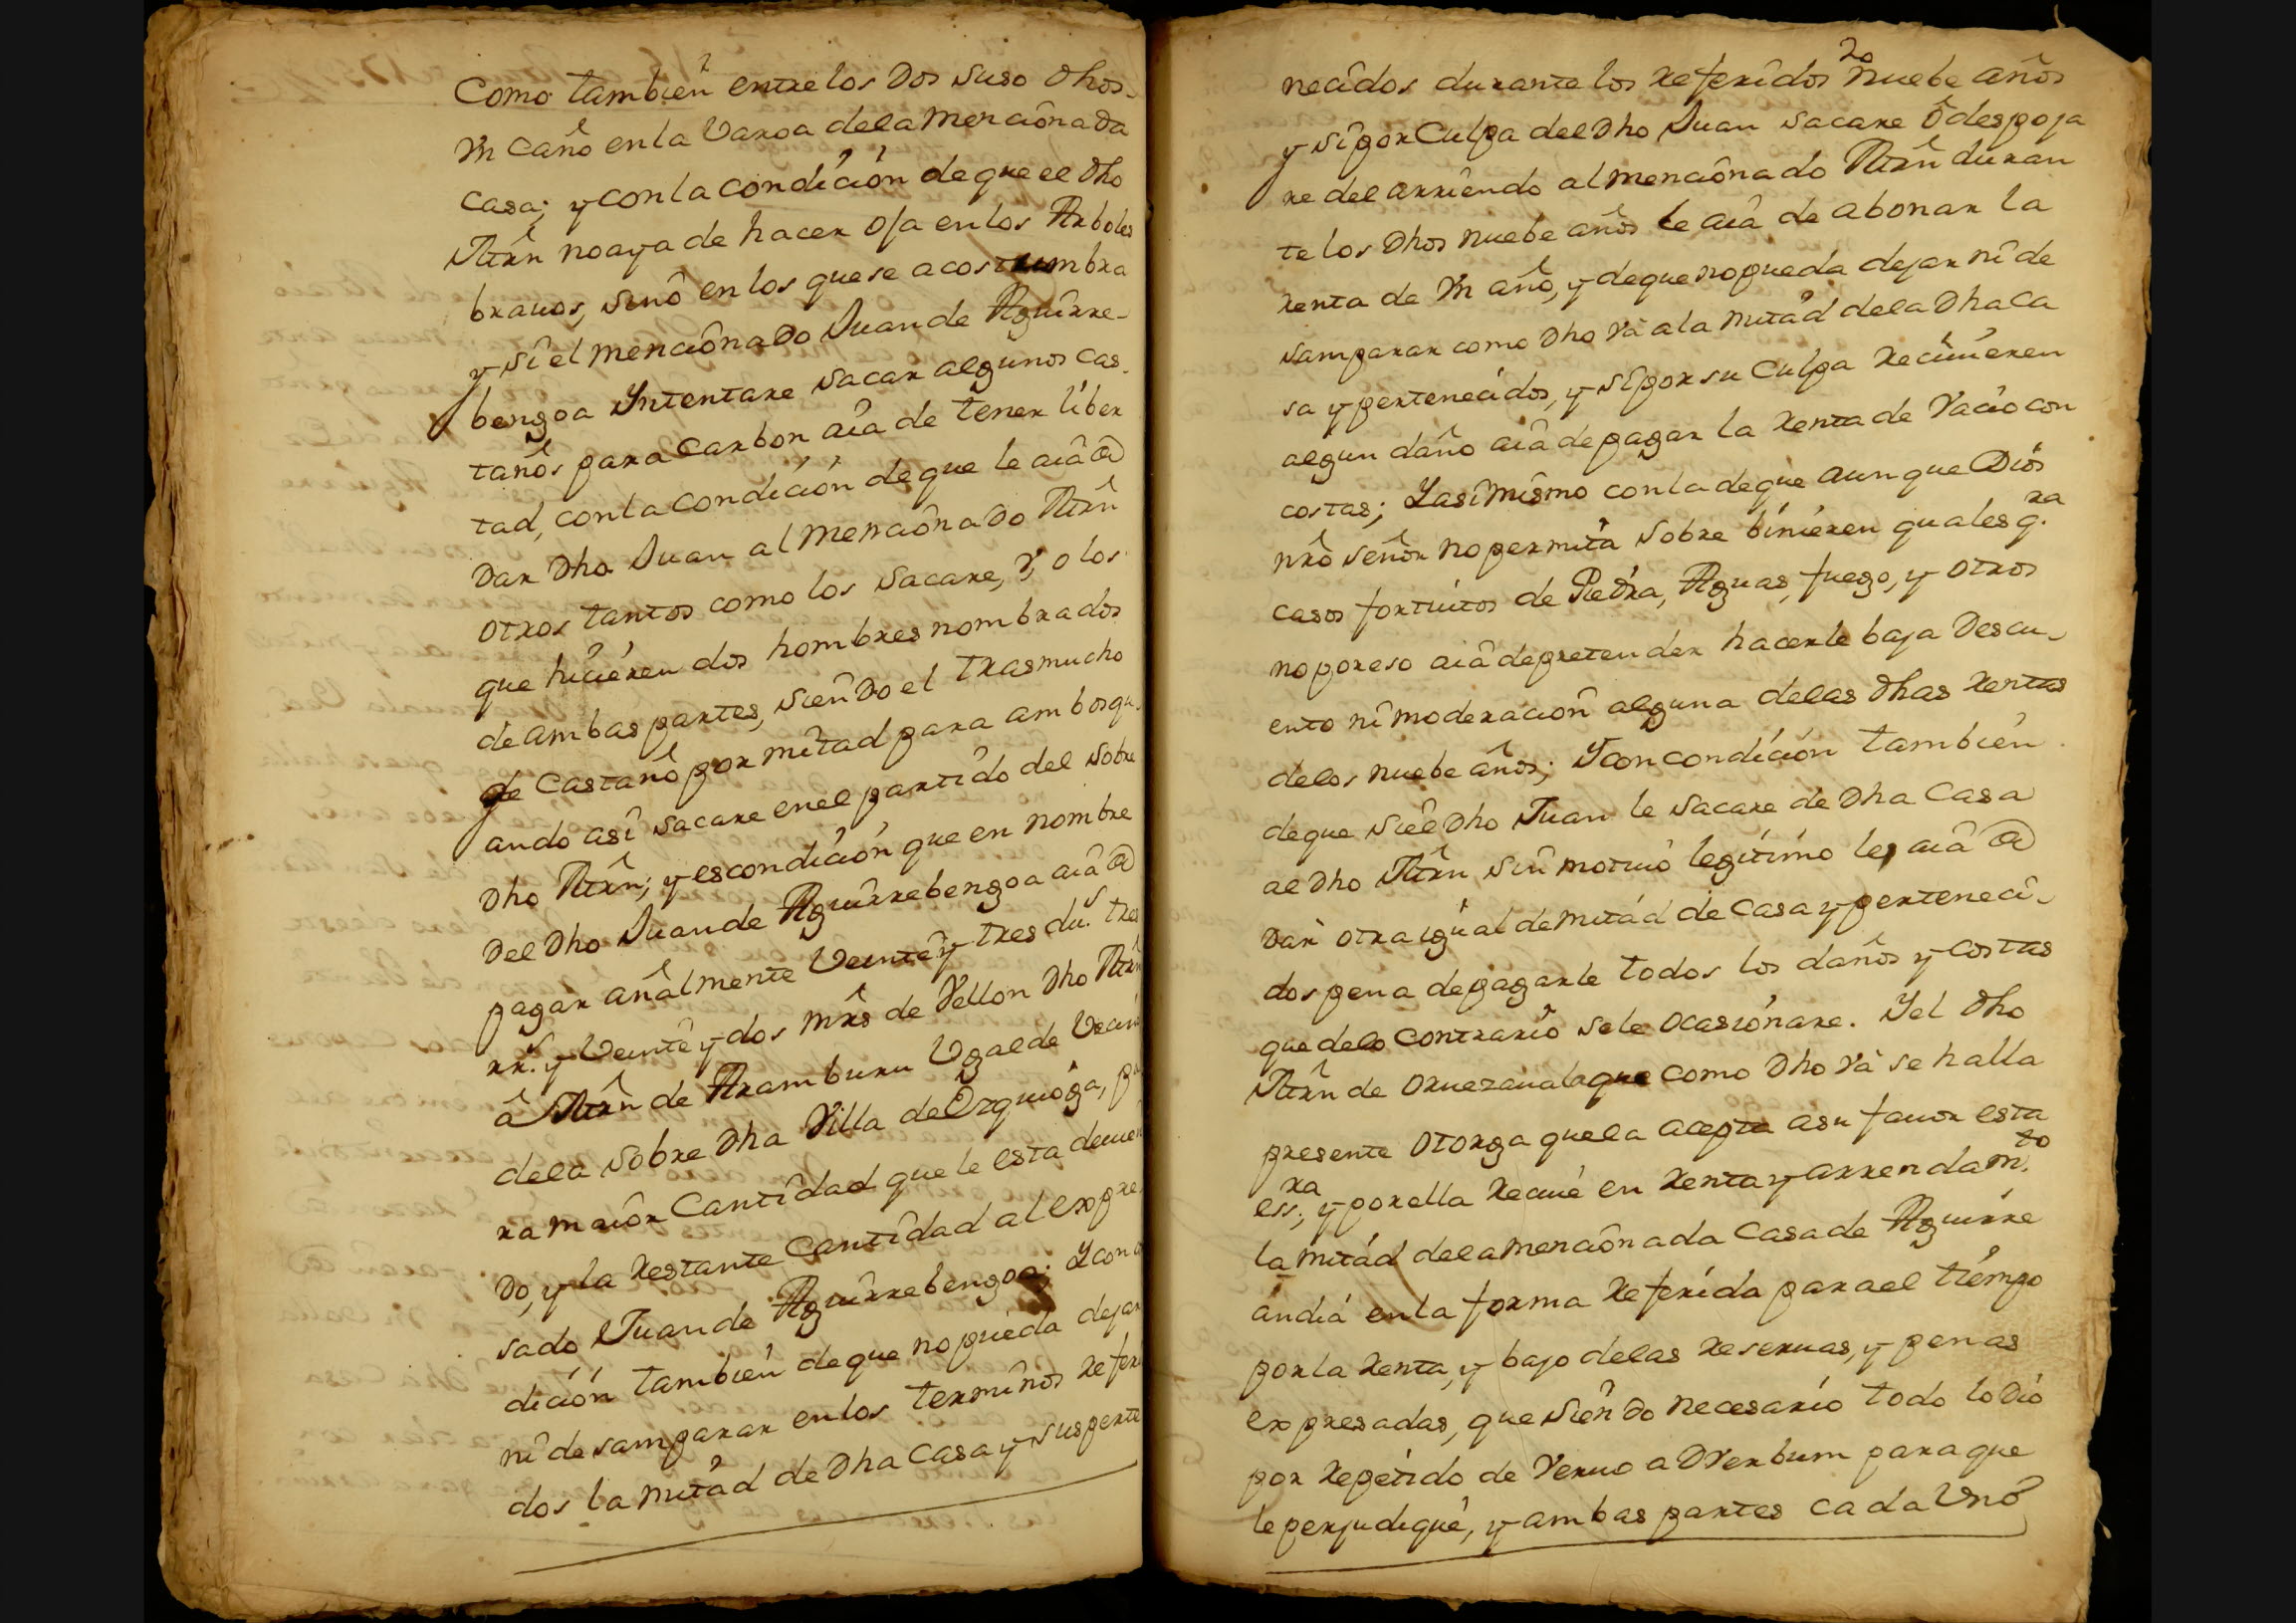 Como tambien entre los Dos suso Dhos
Vn caño en la Varoa dela Mencionada
Casa; y con la condicion de que ee Dho
Mrñ no aya de hacer oja en los Arboles
brauos, sino en los que se acostumbra
y si el Mencionado Juan de Aguirre-
bengoa Yntentare sacar algunos cas-
taños para Carbon, aia de tener liber
tad, con la condicion de que le aia @
Dar Dho Juan al Mencionado Mrñ
otros tantos como los sacare, Y, o los
que hicieren dos hombres nombrados
de ambas partes, siendo el trasmucho
de Castaño por mitad para ambos qu-
ando asi sacare en el partido del sobre
Dho Mrñ; y es condicion que en nombre
Del Dho Juan de Aguirrebengoa aia @
pagar añalmente Veinte y tres du.s tres
rr.s y Veinte y dos mrs de Vellon Dho Mrñ
â Mrñ de Aramburu Vgalde Vecin
dela sobre Dha Villa de Ezquioga, pa
ra maior Cantidad que le esta deuien
Do, y la restante Cantidad al expre
sado Juan de Aguirrebengoa; Y con
dicion tambien de que no pueda dejar
ni desamparar en los terminos refer
dos la mitad de Dha Casa y sus perte
20
necidos durante los referidos nuebe años
y si por Culpa del Dho Juan sacare ô despoja
re del arriendo al mencionado Mrñ duran
te los Dhos nuebe años le aia de abonar la
renta de Vn año, y de que no pueda dejar ni de
samparar como Dho Va a la mitad dela Dha Ca
sa y pertenecidos, y si por su Culpa reciuieren
algun daño aia de pagar la renta de Vacio con
costas; Y asi mismo con la de que aunque Dios
nrô señor no permita sobre binieren quales q.ra
casos fortuitos de Piedra, Aguas, fuego, y otros
no por eso aia de pretender hacerle baja Descu-
ento ni moderacion alguna delas Dhas rentas
delos nuebe años; Y con condicion tambien
de que si el Dho Juan le sacare de Dha Casa
ae Dho Mrñ sin motiuo legitimo le aia @
Dar otra igual de mitad de Casa y perteneci-
dos pena de pagarle todos los daños y costas
que delo contrario sele ocasionare. Y el Dho
Mrñ de Oruezaualaque como Dho Va se halla
presente otorga que la acepta a su fauor esta
ess.ra, y por ella reciue en renta y arrendam.to
la mitad dela mencionada Casa de Aguirre
andia en la forma referida para el tiempo
por la renta, y bajo delas reseruas, y penas
expresadas, que siendo necesario todo lo Dio
por repetido de Veruo a DVerbum para que
le perjudique, y ambas partes cada Vno